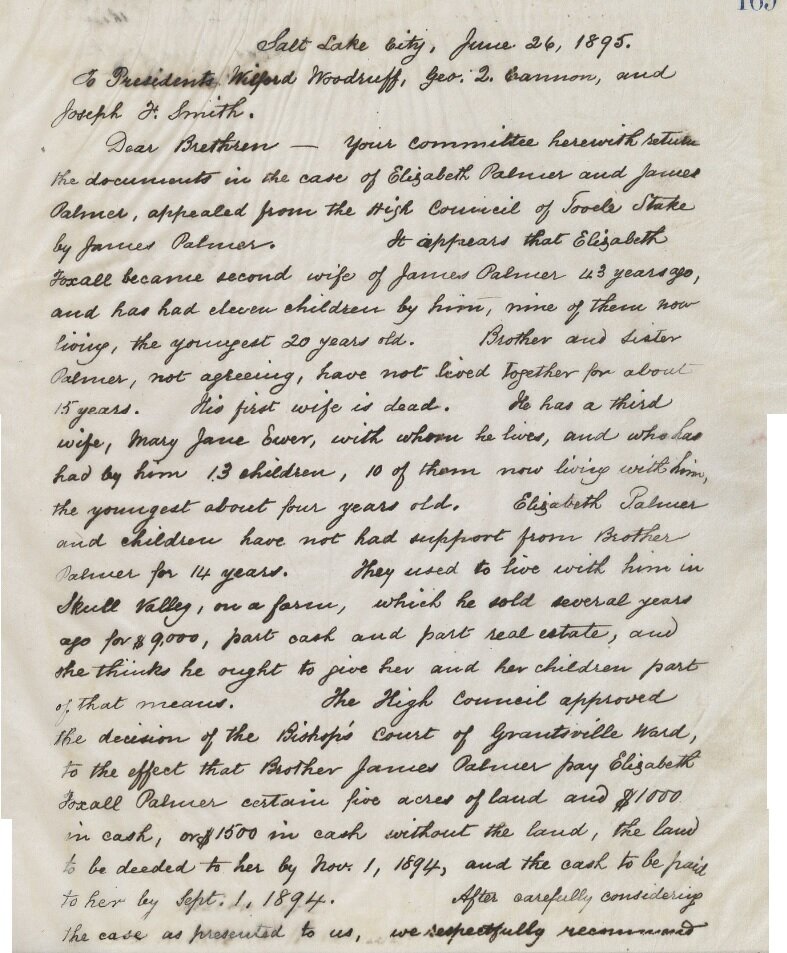 169
Salt Lake City, June 26, 1895.
To Presidents Wilford Woodruff, Geo. Q. Cannon, and
Joseph F. Smith.
Dear Brethren — Your committee herewith return
the documents in the case of Elizabeth Palmer and James
Palmer, appealed from the High Council of Tooele Stake
by James Palmer. It appears that Elizabeth
Foxall became second wife of James Palmer 43 years ago,
and has had eleven children by him, nine of them now
living, the youngest 20 years old. Brother and Sister
Palmer, not agreeing, have not lived together for about
15 years. His first wife is dead. He has a third
wife, Mary Jane Ewer, with whom he lives, and who has
had by him 13 children, 10 of them now living with him,
the youngest about four years old. Elizabeth Palmer
and children have not had support from Brother
Palmer for 14 years. They used to live with him in
Skull Valley, on a farm, which he sold several years
ago for $9,000, part cash and part real estate, and
she thinks he ought to give her and her children part
of that means. The High Council approved
the decision of the Bishop's Court of Grantsville Ward,
to the effect that Brother James Palmer pay Elizabeth
Foxall Palmer certain five acres of land and $1000
in cash, or $1500 in cash without the land, the land
to be deeded to her by Nov. 1, 1894, and the cash to be paid
to her by Sept. 1, 1894. After carefully considering
the case as presented to us, we respectfully recommend